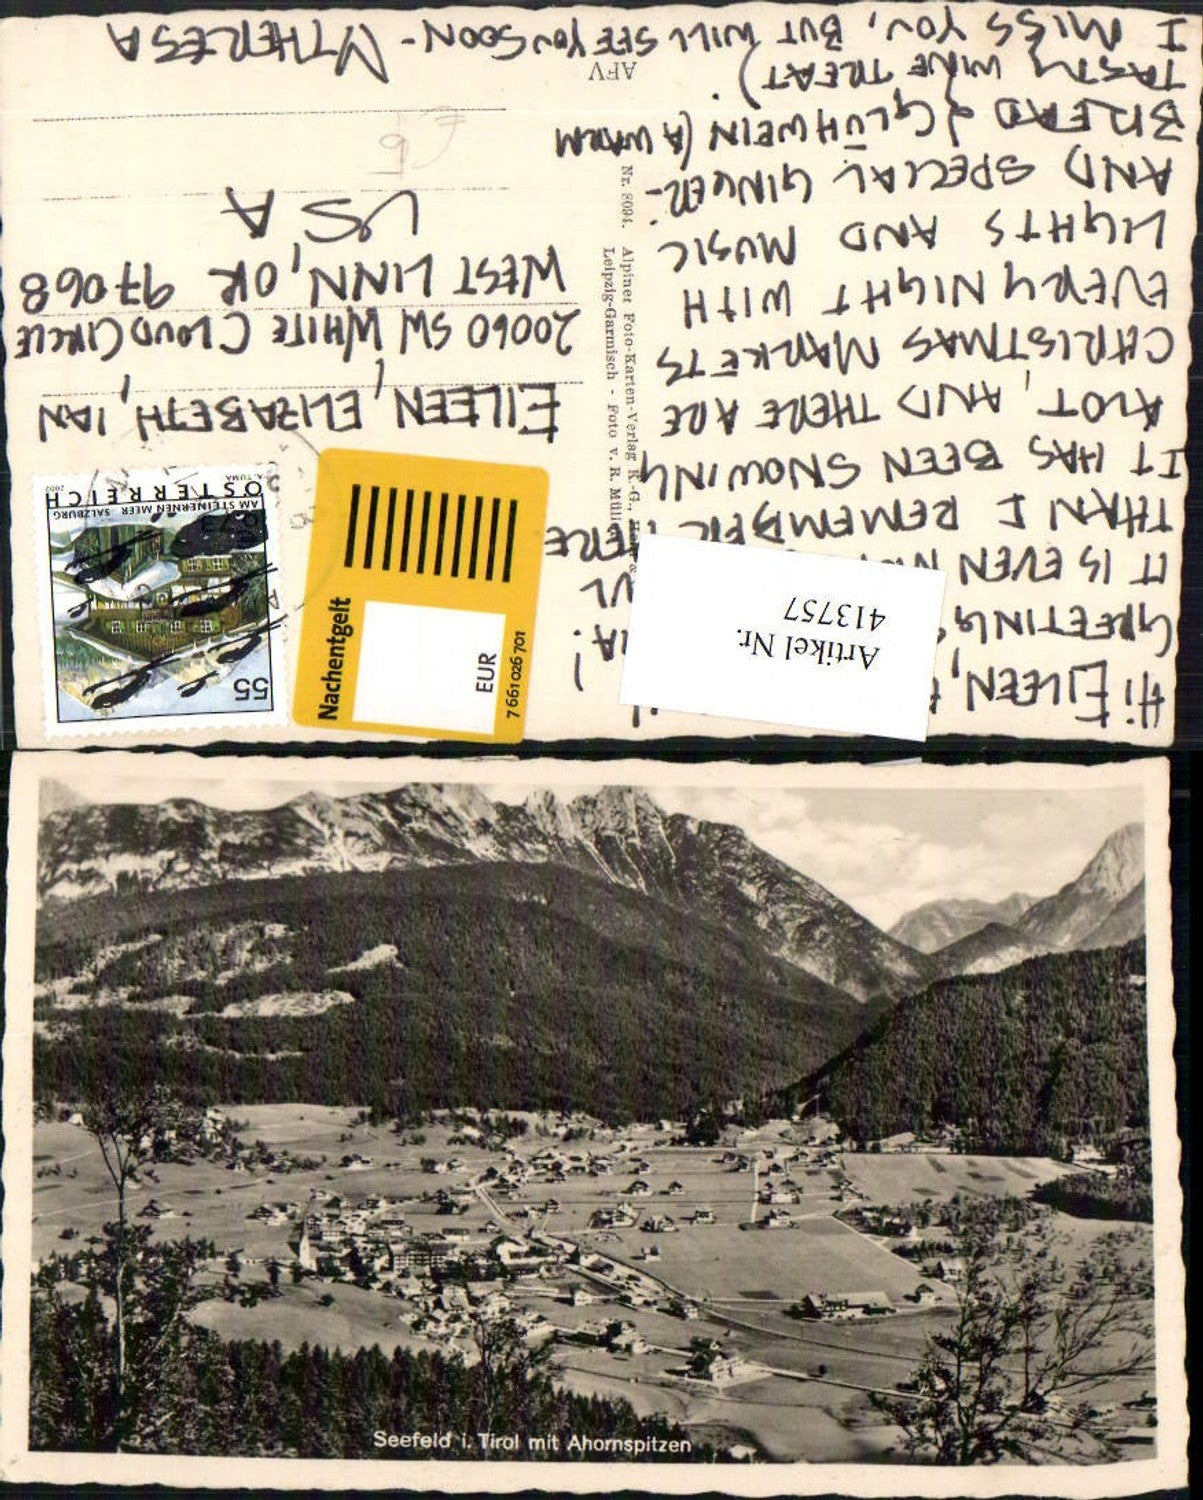 HI EILEEN,
GREETINGS
IT IS EVEN
THAN I REMEMBER.
IT HAS BEEN SNOWING
ALOT, AND THERE ARE
CHRISTMAS MARKETS
EVERY NIGHT WITH
LIGHTS AND MUSIC
AND SPECIAL GINGER-
BREAD & GLÜHWEIN (A WARM
TASTY WINE TREAT).
I MISS YOU, BUT WILL SEE YOU SOON - MTHERESA
Artikel Nr.
413757
AFV
Nr. 8094. Alpiner Foto-Karten-Verlag K.-G.,
Leipzig-Garmisch - Foto v. R. Müller
55
AM STEINERNEN MEER SALZBURG
ÖSTERREICH
A. TUMA 2002
Nachentgelt
EUR
7 661 026 701
EILEEN, ELIZABETH, IAN
20060 SW WHITE CLOUD CIRCLE
WEST LINN, OR 97068
USA
Seefeld i. Tirol mit Ahornspitzen